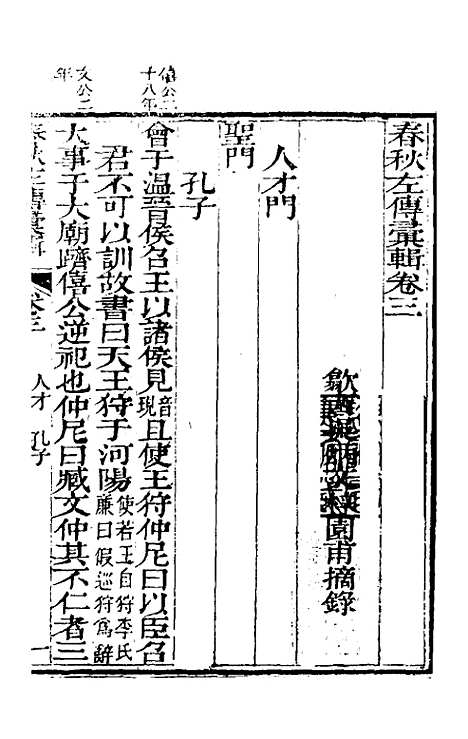 春秋左傳彙輯卷三
歙
園甫摘錄
人才門
聖門
孔子
僖公二
十八年
會于溫晉侯召王以諸侯見音現且使王狩仲尼曰以臣召
君不可以訓故書曰天王狩于河陽使若王自狩李氏廉曰假巡狩爲辭
文公二
年
大事于大廟躋僖公逆祀也仲尼曰臧文仲其不仁者三
春秋左傳彙輯
卷三
人才 孔子
一